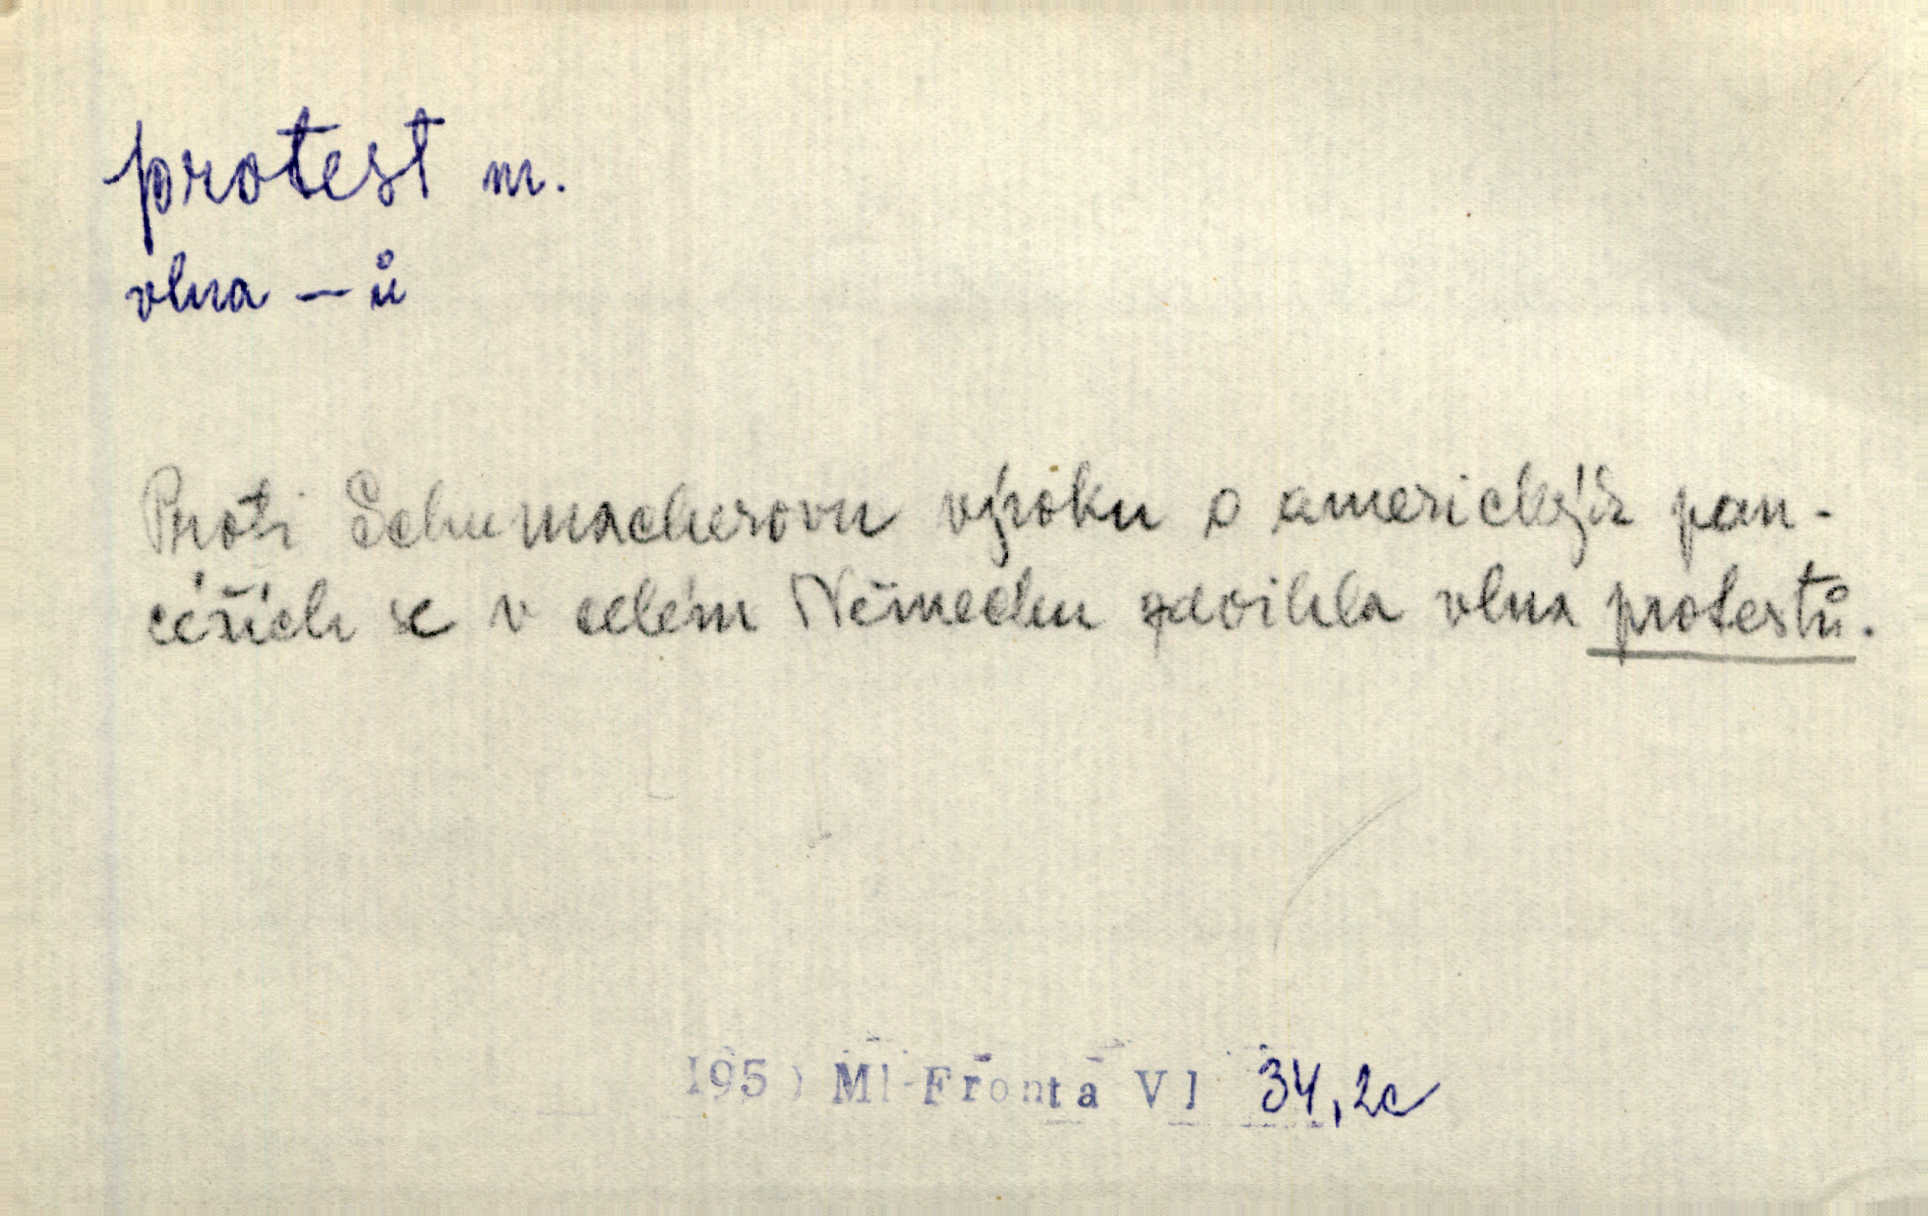 protest m.
vlna – ů
Proti Schumacherovu výroku o amerických pan-
céřích se v celém Německu zdvihla vlna protestů.
Ml-Fronta VI 34, 2c